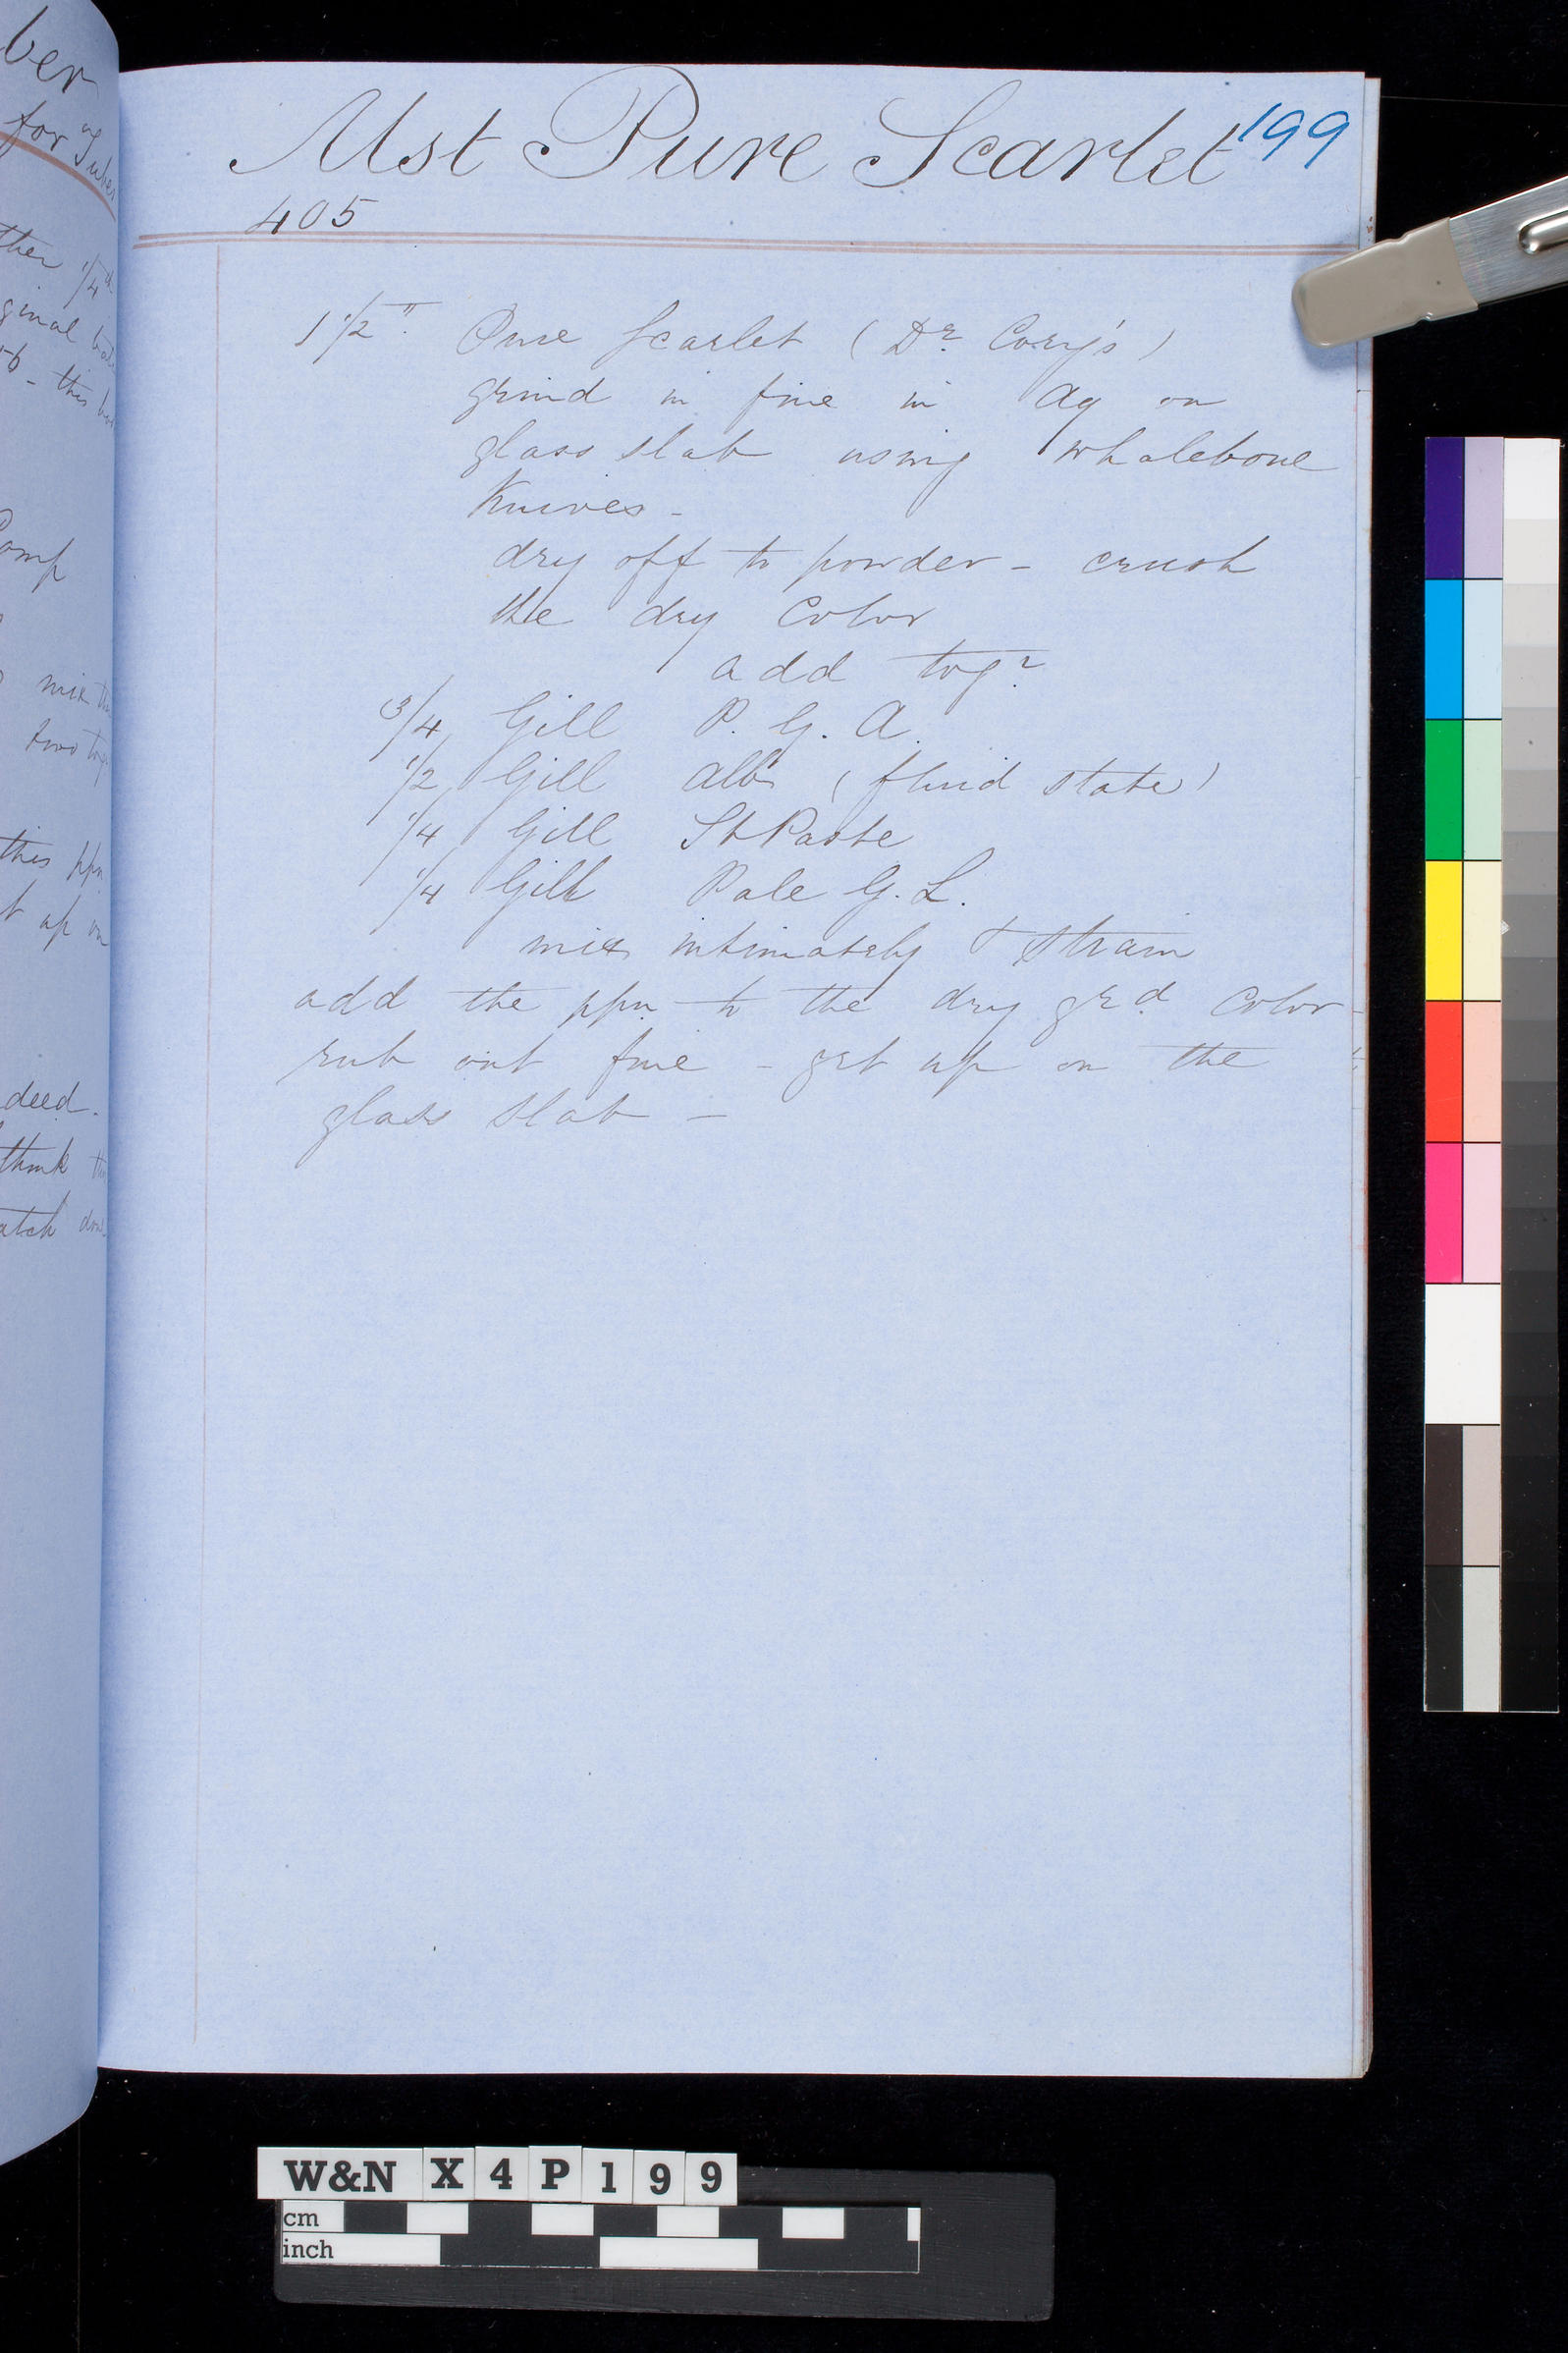 ber
for Tubes
ther 1/4
ginal
this
Comp
mix
two tog
this ppn
t up on
deed.
think
atch
Mst Pure Scarlet 199
405
1 1/2" Pure Scarlet (Dr. Cory's)
grind in fine in Aq on
glass slab using whalebone
Knives -
dry off to powder - crush
the dry Color
add togr
3/4 Gill P. G. A.
1/2 Gill Albn (fluid state)
1/4 Gill St Paste
1/4 Gill Pale G. L.
mix intimately & strain
add the ppn to the dry grd. Color -
rub out fine - get up on the
glass slab -
W&N X 4 P 1 9 9
cm
inch